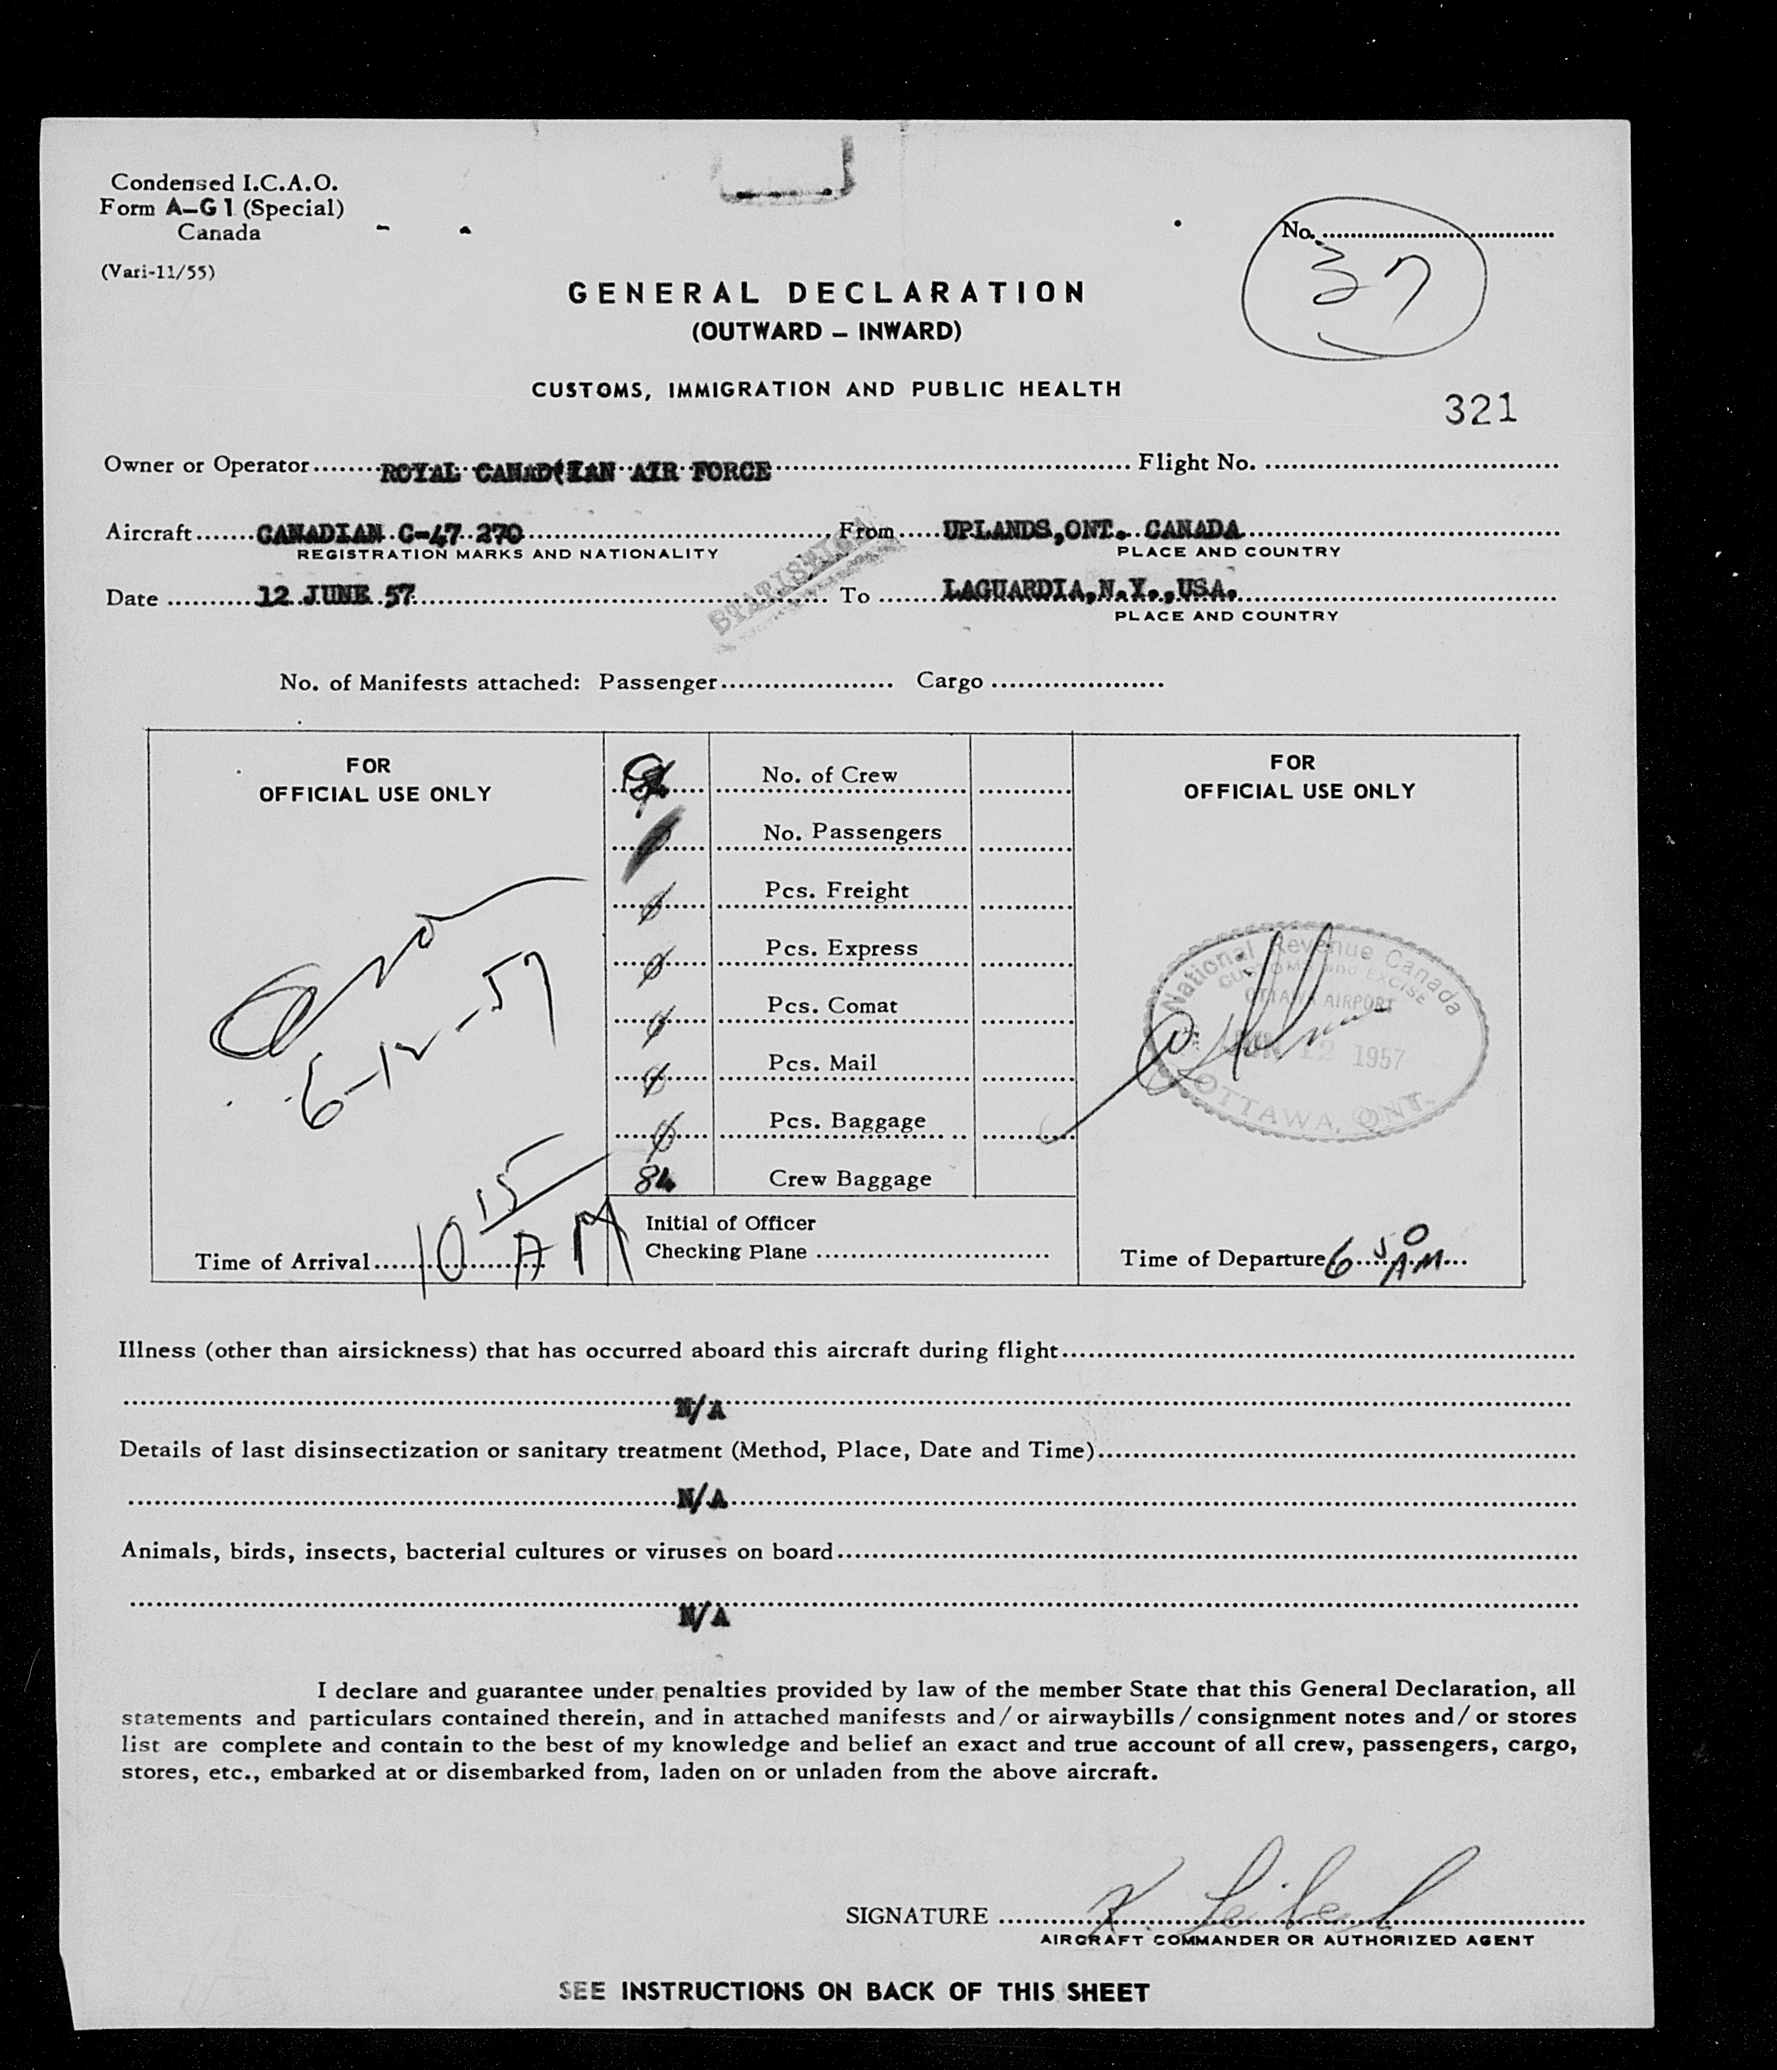 Condensed I.C.A.O.
Form A–G1 (Special)
Canada
(Vari-11/55)
No. ........
37
GENERAL DECLARATION
(OUTWARD – INWARD)
CUSTOMS, IMMIGRATION AND PUBLIC HEALTH
321
Owner or Operator ........ ROYAL CANAD(IAN AIR FORCE ........ Flight No. ........
Aircraft ........ CANADIAN C-47 270 ........ From ........ UPLANDS, ONT. CANADA ........
REGISTRATION MARKS AND NATIONALITY PLACE AND COUNTRY
STATISTICAL
Date ........ 12 JUNE 57 ........ To ........ LAGUARDIA, N.Y., USA. ........
PLACE AND COUNTRY
No. of Manifests attached: Passenger ........ Cargo ........
FOR
OFFICIAL USE ONLY
6-12-57
10 15 AM
Time of Arrival ........
No. of Crew
No. Passengers
Pcs. Freight
Pcs. Express
Pcs. Comat
Pcs. Mail
Pcs. Baggage
Crew Baggage
Initial of Officer
Checking Plane ........
FOR
OFFICIAL USE ONLY
National Revenue Canada
CUSTOMS and EXCISE
OTTAWA AIRPORT
JUN 12 1957
OTTAWA, ONT.
Time of Departure 6 50 A.M.
Illness (other than airsickness) that has occurred aboard this aircraft during flight ........
N/A
Details of last disinsectization or sanitary treatment (Method, Place, Date and Time) ........
N/A
Animals, birds, insects, bacterial cultures or viruses on board ........
N/A
I declare and guarantee under penalties provided by law of the member State that this General Declaration, all
statements and particulars contained therein, and in attached manifests and/or airwaybills/consignment notes and/or stores
list are complete and contain to the best of my knowledge and belief an exact and true account of all crew, passengers, cargo,
stores, etc., embarked at or disembarked from, laden on or unladen from the above aircraft.
SIGNATURE ........
AIRCRAFT COMMANDER OR AUTHORIZED AGENT
SEE INSTRUCTIONS ON BACK OF THIS SHEET